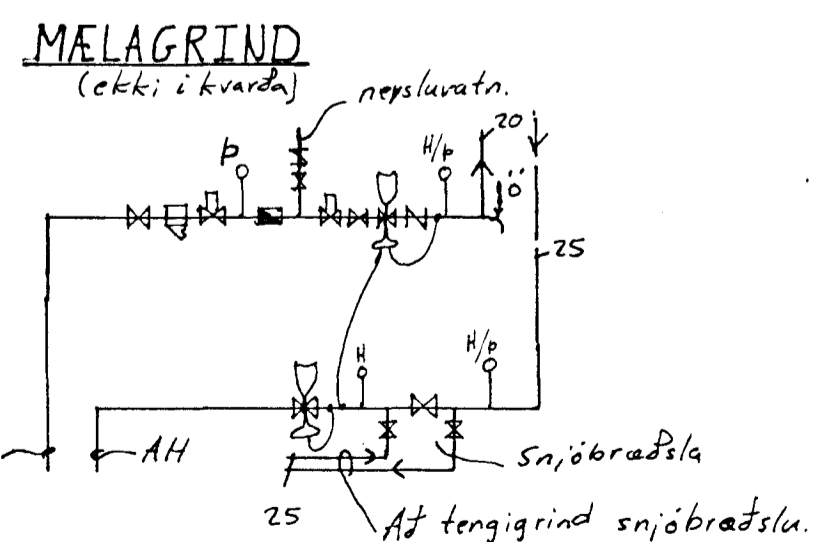 MÆLAGRIND
(ekki í kvarða)
neysluvatn.
20
Þ
H/Þ
Ö
25
H
H/Þ
AH
Snjóbræðsla
25
Að tengigrind snjóbræðslu.